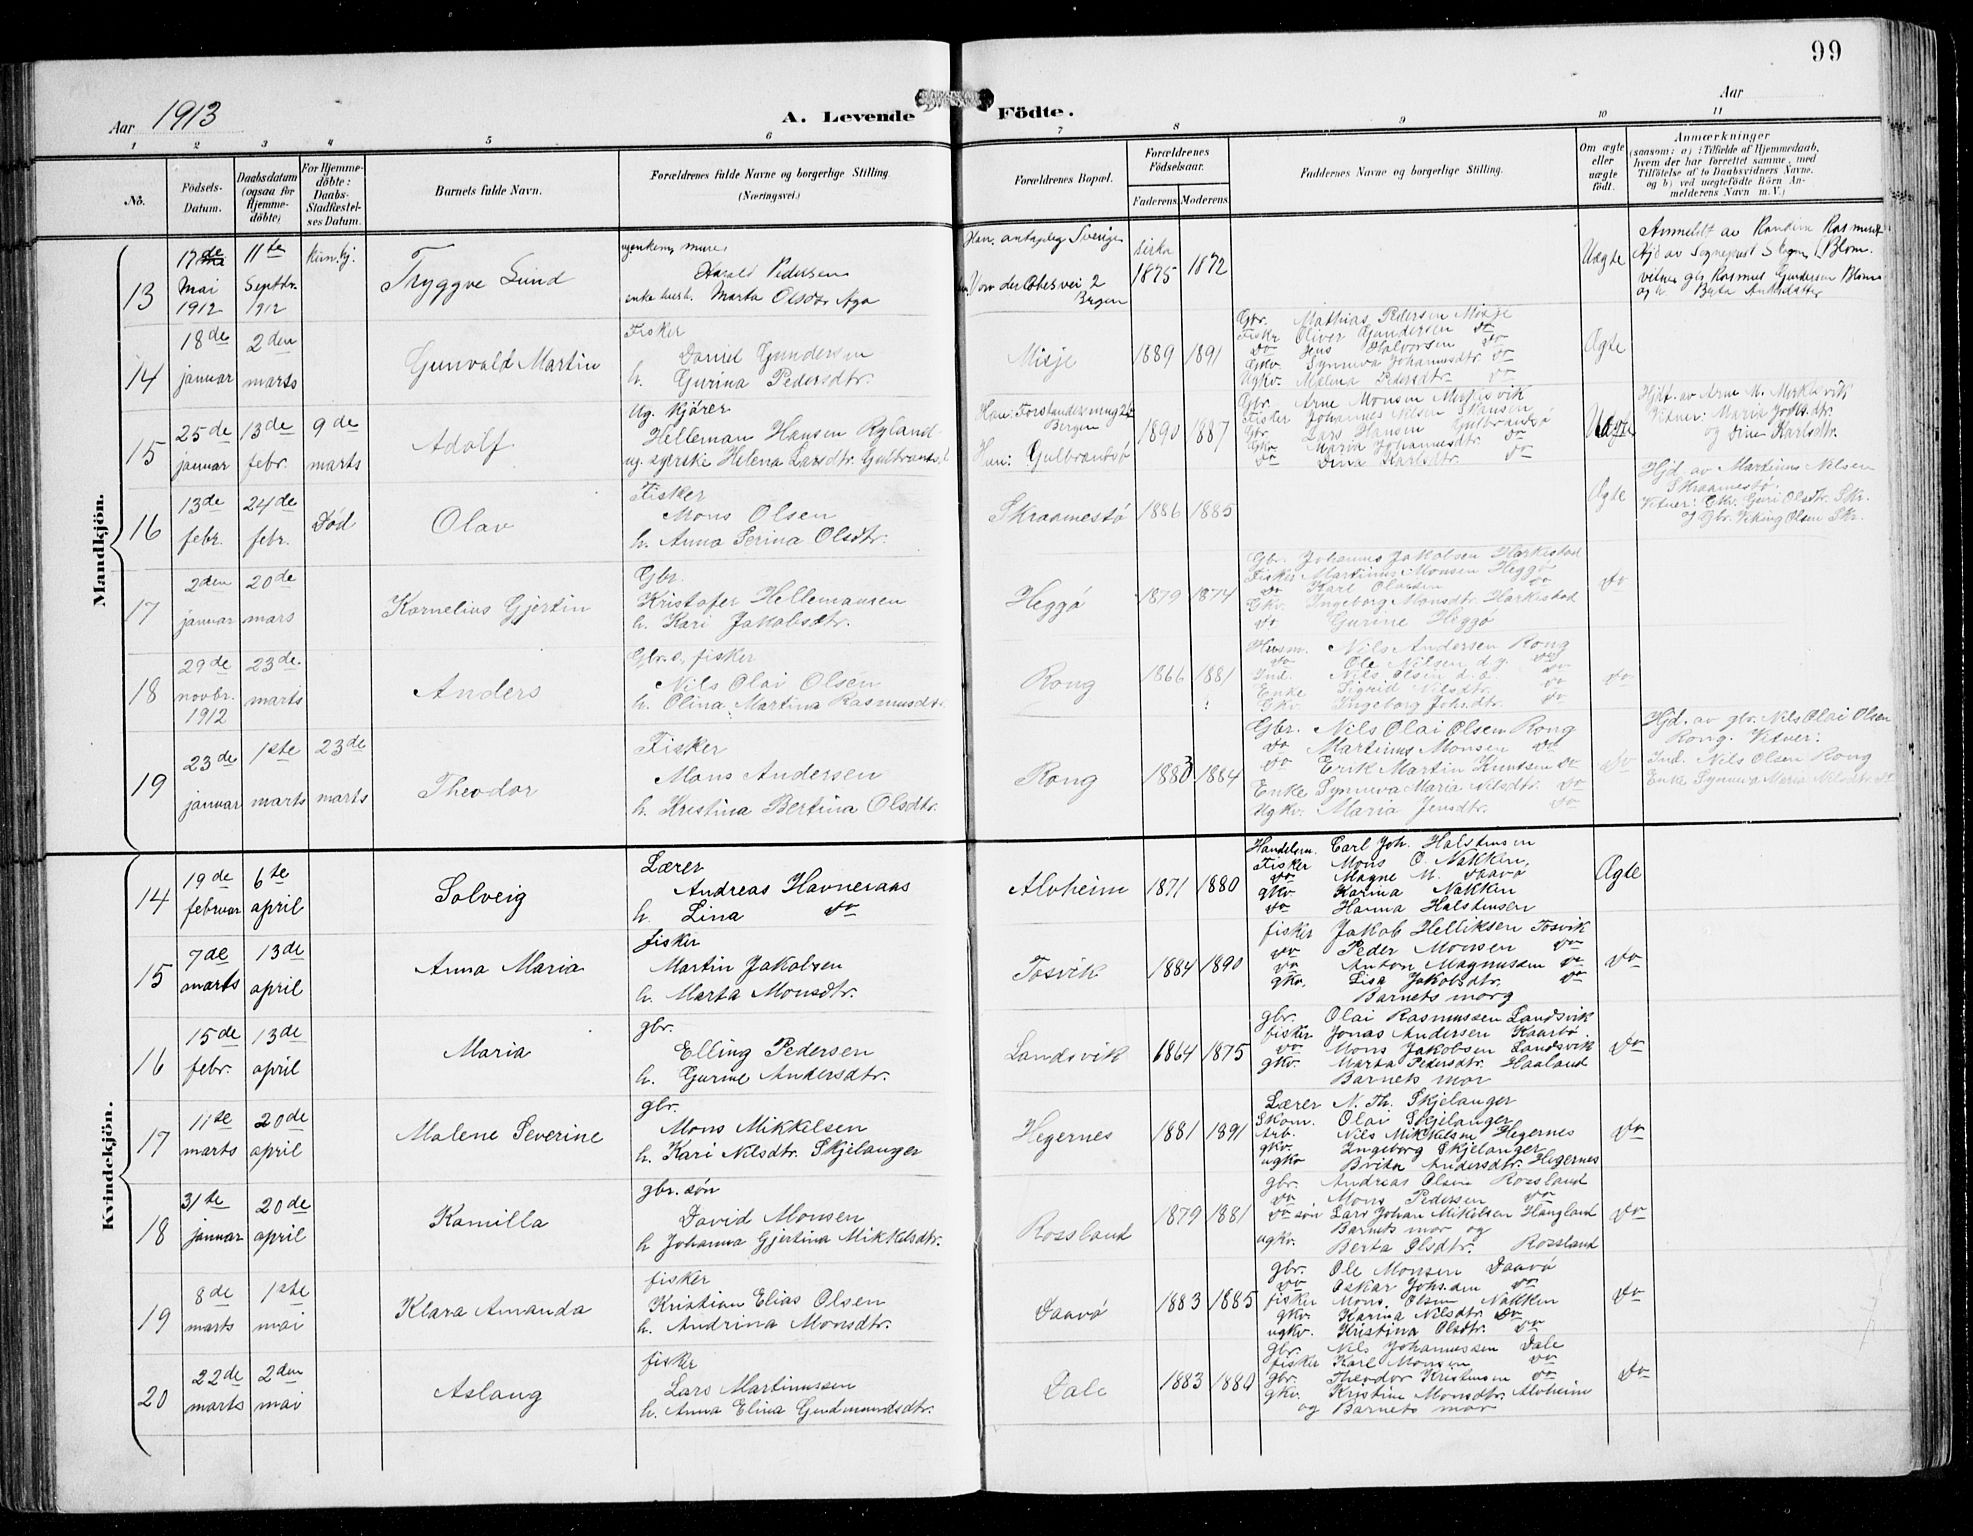 99
Aar 1913
A. Levende Födte.
Aar
1 2 3 4 5 6 7 8 9 10 11
No.
Födsels-
Datum.
Daabsdatum
(ogsaa for
Hjemme-
döbte)
For Hjemme-
döbte:
Daabs-
Stadfæstel-
ses Datum.
Barnets fulde Navn.
Forældrenes fulde Navne og borgerlige Stilling.
(Næringsvei.)
Forældrenes Bopæl.
Forældrenes
Födselsaar.
Faderens Moderens
Faddernes Navne og borgerlige Stilling.
Om ægte
eller
uægte
födt.
Anmærkninger
(saasom: a) i Tilfælde af Hjemmedaab,
hvem der har forrettet samme, med
Tilföielse af to Daabsvidners Navne,
og b) ved uægtefödte Börn An-
melderens Navn m. V.)
Mandkjön.
13
17de
Mai
1912
11te
Septbr.
1912
Tryggve Lund
Harald Pedersen
Marta Olsdtr Aga
Han, antagelig Sverige
2
Bergen
cirka
1875
1872
Uægte
Anmeldt av Randine Rasmusdtr
Blom.
vitner gbr Rasmus Gundersen Blom
14
18de
januar
2den
marts
Gunvald Martin
Fisker
Daniel Gundersen
h. Gurina Pedersdtr.
Misje
1889
1891
Gbr. Mathias Pedersen Misje
Fisker Oliver Gundersen do
do Jens Halvorsen do
Gkv. Synneva Johannesdtr do
Ugkv. Malena Pedersdtr. do
Ægte
15
25de
januar
13de
febr.
9de
marts
Adolf
Ug. Kjører
Helleman Hansen Ryland
Helena Larsdtr.
Bergen
1890
1887
Gbr. Arne Monsen Merkesvik
Fisker Johannes Nilsen Skansen
Gbr. Lars Hansen Gulbrandsø
Gkv. Maria Johannesdtr do
do Dina Karlsdtr. do
Uægte
Hjdt. av Arne M. Merkesvik
Vitner: Maria Johs.dtr.
og Dina Karlsdtr.
16
13de
febr.
24de
febr.
Død
Olav
Fisker
Mons Olsen
h. Anna Serina Olsdtr.
Skraamestø
1886
1885
Ægte
Hjd. av Martinus Nilsen
Skraamestø.
Vitner: Gkv. Guri Olsdtr. Skr.
og Gbr. Viking Olsen Skr.
17
2den
januar
20de
mars
Kornelius Gjertin
Gbr.
Kristofer Hellemansen
h. Kari Jakobsdtr.
Heggø
1879
1874
Gbr. Johannes Jakobsen Harkestad
Fisker Martinus Monsen Heggø
do Karl Olassen do
Gkv. Ingeborg Monsdtr. Harkestad
do Gurine Heggø
do
18
29de
novbr.
1912
23de
marts
Anders
Gbr. o. fisker
Nils Olai Olsen
h. Olina Martina Rasmusdtr.
Rong
1866
1881
Husm. Nils Andersen Rong
do Ole Nilsen d.y. do
Ind. Nils Olsen d.e. do
Enke Sigrid Nilsdtr. do
Gkv. Ingeborg Johsdtr. do
do
19
23de
januar
1ste
marts
23de
marts
Theodor
Fisker
Mons Andersen
h. Kristina Bertina Olsdtr.
Rong
1883
1884
Gbr. Nils Olai Olsen Rong
do Martinus Monsen do
do Erik Martin Knutsen do
Enke Synneva Maria Nilsdtr. do
Ugkv. Maria Jensdtr. do
do
Hjd. av gbr. Nils Olai Olsen
Rong. Vitner:
Ind. Nils Olsen Rong
Enke Synneva Maria Nilsdtr. do
Kvindekjön.
14
19de
februar
6te
april
Solveig
Lærer
Andreas Havneraas
h. Lina do
Alvheim
1871
1880
Handelsm. Carl Joh. Halstensen
Fisker Mons O. Nakken,
do Magne M. Daavø
gkv Karina Nakken
do Hanna Halstensen
Ægte
15
7de
marts
13de
april
Anna Maria
fisker
Martin Jakobsen
h. Marta Monsdtr.
Tosvik
1884
1890
fisker Jakob Helliksen Tosvik
do Peder Monsen do
do Anton Magnussen do
gkv. Lisa Jakobsdtr. do
Barnets morg
do
16
15de
febr.
13de
april
Maria
gbr.
Elling Pedersen
h. Gurine Andersdtr.
Landsvik
1864
1875
gbr. Olai Rasmussen Landsvik
fisker Jonas Andersen Kaarbø.
do Mons Jakobsen Landsvik
gkv. Marta Pedersdtr. Haaland
Barnets mor
do
17
11te
marts
20de
april
Malene Severine
gbr.
Mons Mikkelsen
h. Kari Nilsdtr. Skjelanger
Hegernes
1881
1891
Lærer N. Th. Skjelanger
Skom. Olai Skjelanger
Arb. Nils Mikkelsen Hegernes
gkv. Ingeborg Skjelanger
ugkv Brita Andersdtr. Hegernes
do
18
31te
januar
20de
april
Kamilla
gbr. søn
David Monsen
h Johanna Gjertina Mikkelsdtr.
Rossland
1879
1881
gbr. Andreas Olsen Rossland
do Mons Pedersen do
do søn Lars Johan Mikelsen Haugland
Barnets mor og
ugkv. Berta Olsdtr. Rossland
do
19
8de
marts
1ste
mai
Klara Amanda
fisker
Kristian Elias Olsen
h. Andrina Monsdtr.
Daavø
1883
1885
gbr. Ole Monsen Daavø
do Oskar Johs.sen do
fisker Mons. Olsen Nakken
gkv. Karina Nilsdtr. do
ugkv. Kristina Olsdtr. do
do
20
22de
marts
2den
mai
Aslaug
fisker
Lars Martinussen
h. Anna Elina Gudmundsdtr.
Dale
1883
1880
gbr. Nils Johannessen Dale
fisker Karl Monsen do
gbr. Theodor Kristensen do
gkv. Kristine Monsdtr. Alvheim
og Barnets mor
do